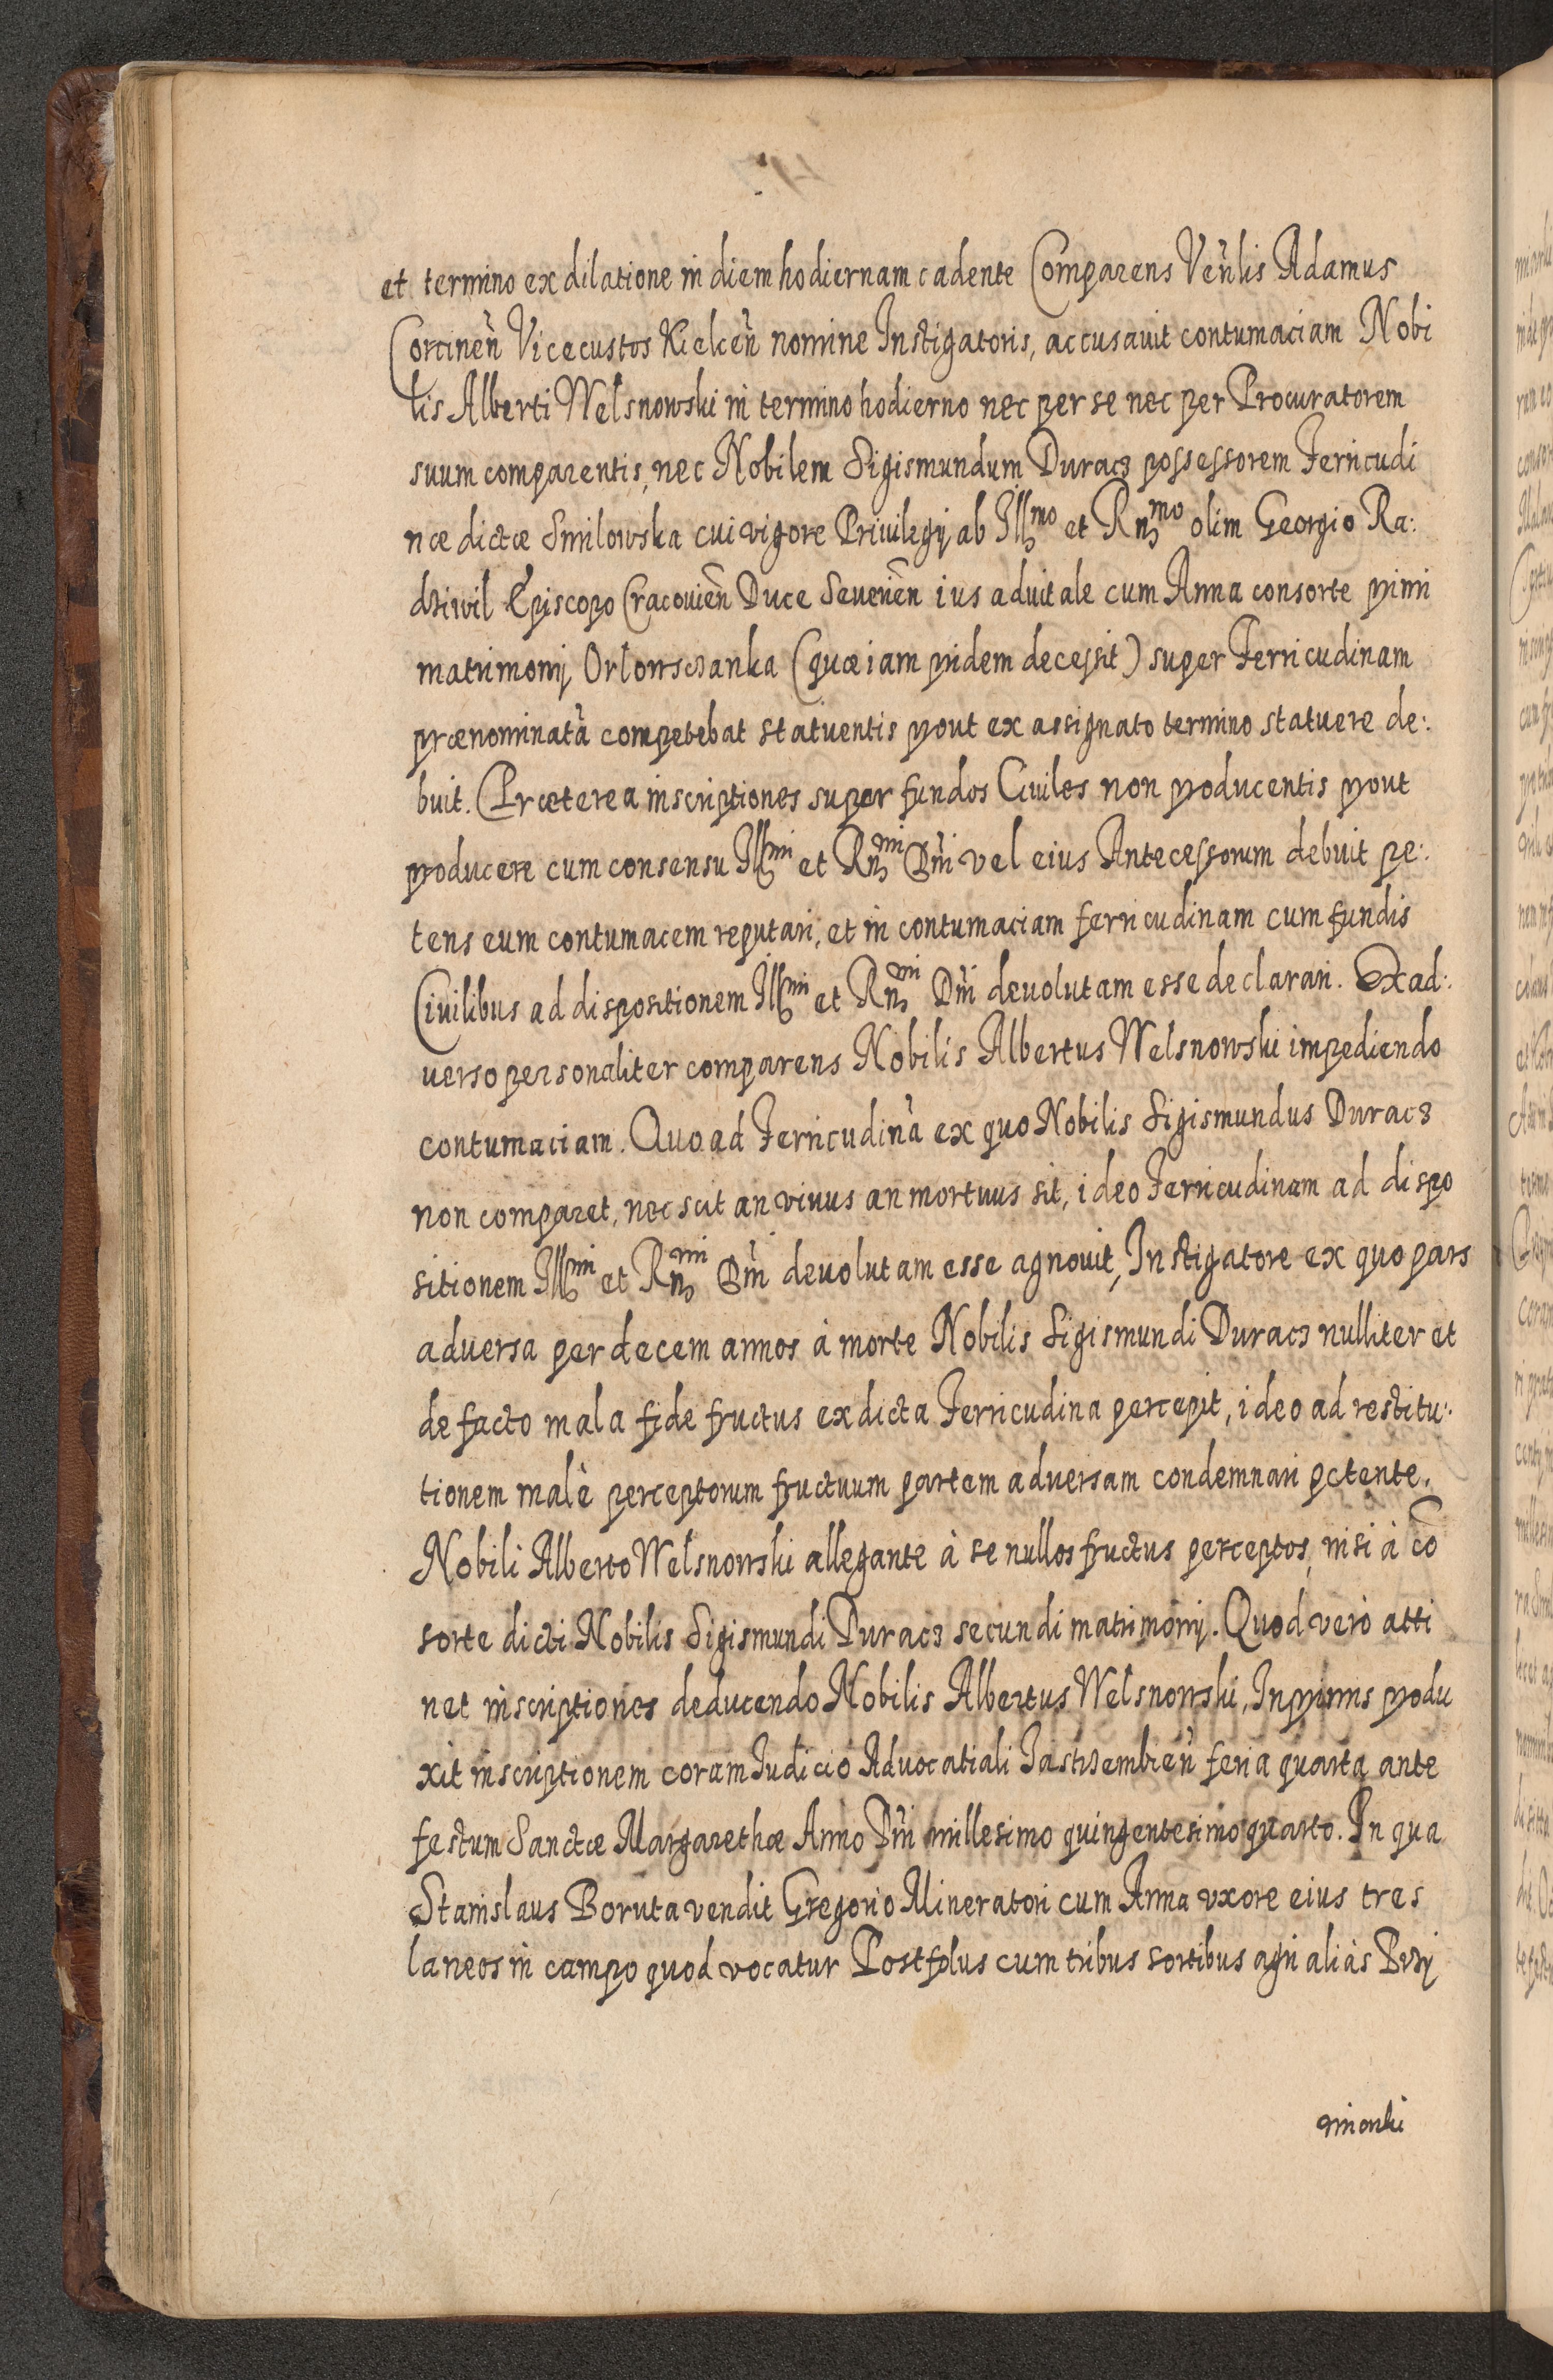 et termino ex dilatione in diem hodiernam cadente Comparens Veńlis Adamus
Corcineń Vicecustos Kielceń nomine Instigatoris, accusauit contumaciam Nobi
lis Alberti Welsnowski in termino hodierno nec per se nec per Procuratorem
suum comparentis, nec Nobilem Sigismundum Duracz possessorem Ferricudi
næ dictæ Smilowska cui vigore Priuilegij ab Illmo et Rnmo olim Georgio Ra:
dziwil Episcopo Cracouień Duce Seuerień ius aduitale cum Anna consorte primi
matrimonij Orlowsczanka (quæ iam pridem decessit) super Ferricudinam
prænominatā competebat statuentis prout ex assignato termino statuere de:
buit. Præterea inscriptiones super fundos Ciuiles non producentis prout
producere cum consensu Illmi et Rnmi Dńi vel eius Antecessorum debuit pe:
tens eum contumacem reputari, et in contumaciam ferricudinam cum fundis
Ciuilibus ad dispositionem Illmi et Rnmi Dńi deuolutam esse declarari. Ex ad:
uerso personaliter comparens Nobilis Albertus Welsnowski impediendo
contumaciam. Quo ad Ferricudinā ex quo Nobilis Sigismundus Duracz
non comparet, nec scit an viuus an mortuus sit, ideo Ferricudinam ad dispo
sitionem Illmi et Rnmi Dńi deuolutam esse agnouit, Instigatore ex quo pars
aduersa per decem annos à morte Nobilis Sigismundi Duracz nulliter et
de facto mala fide fructus ex dicta Ferricudina percepit, ideo ad restitu:
tionem malè perceptorum fructuum partem aduersam condemnari petente.
Nobili Alberto Welsnowski allegante à se nullos fructus perceptos, nisi à cō
sorte dicti Nobilis Sigismundi Duracz secundi matrimonij. Quod verò atti
net inscriptiones deducendo Nobilis Albertus Welsnowski, Inprimis produ
xit inscriptionem coram Iudicio Aduocatiali Jastrzembień feria quarta ante
festum Sanctæ Margarethæ Anno Dńi millesimo quingentesimo quarto. In qua
Stanislaus Boruta vendit Gregorio Mineratori cum Anna vxore eius tres
laneos in campo quod vocatur Postfolus cum tribus sortibus agri aliàs Przy